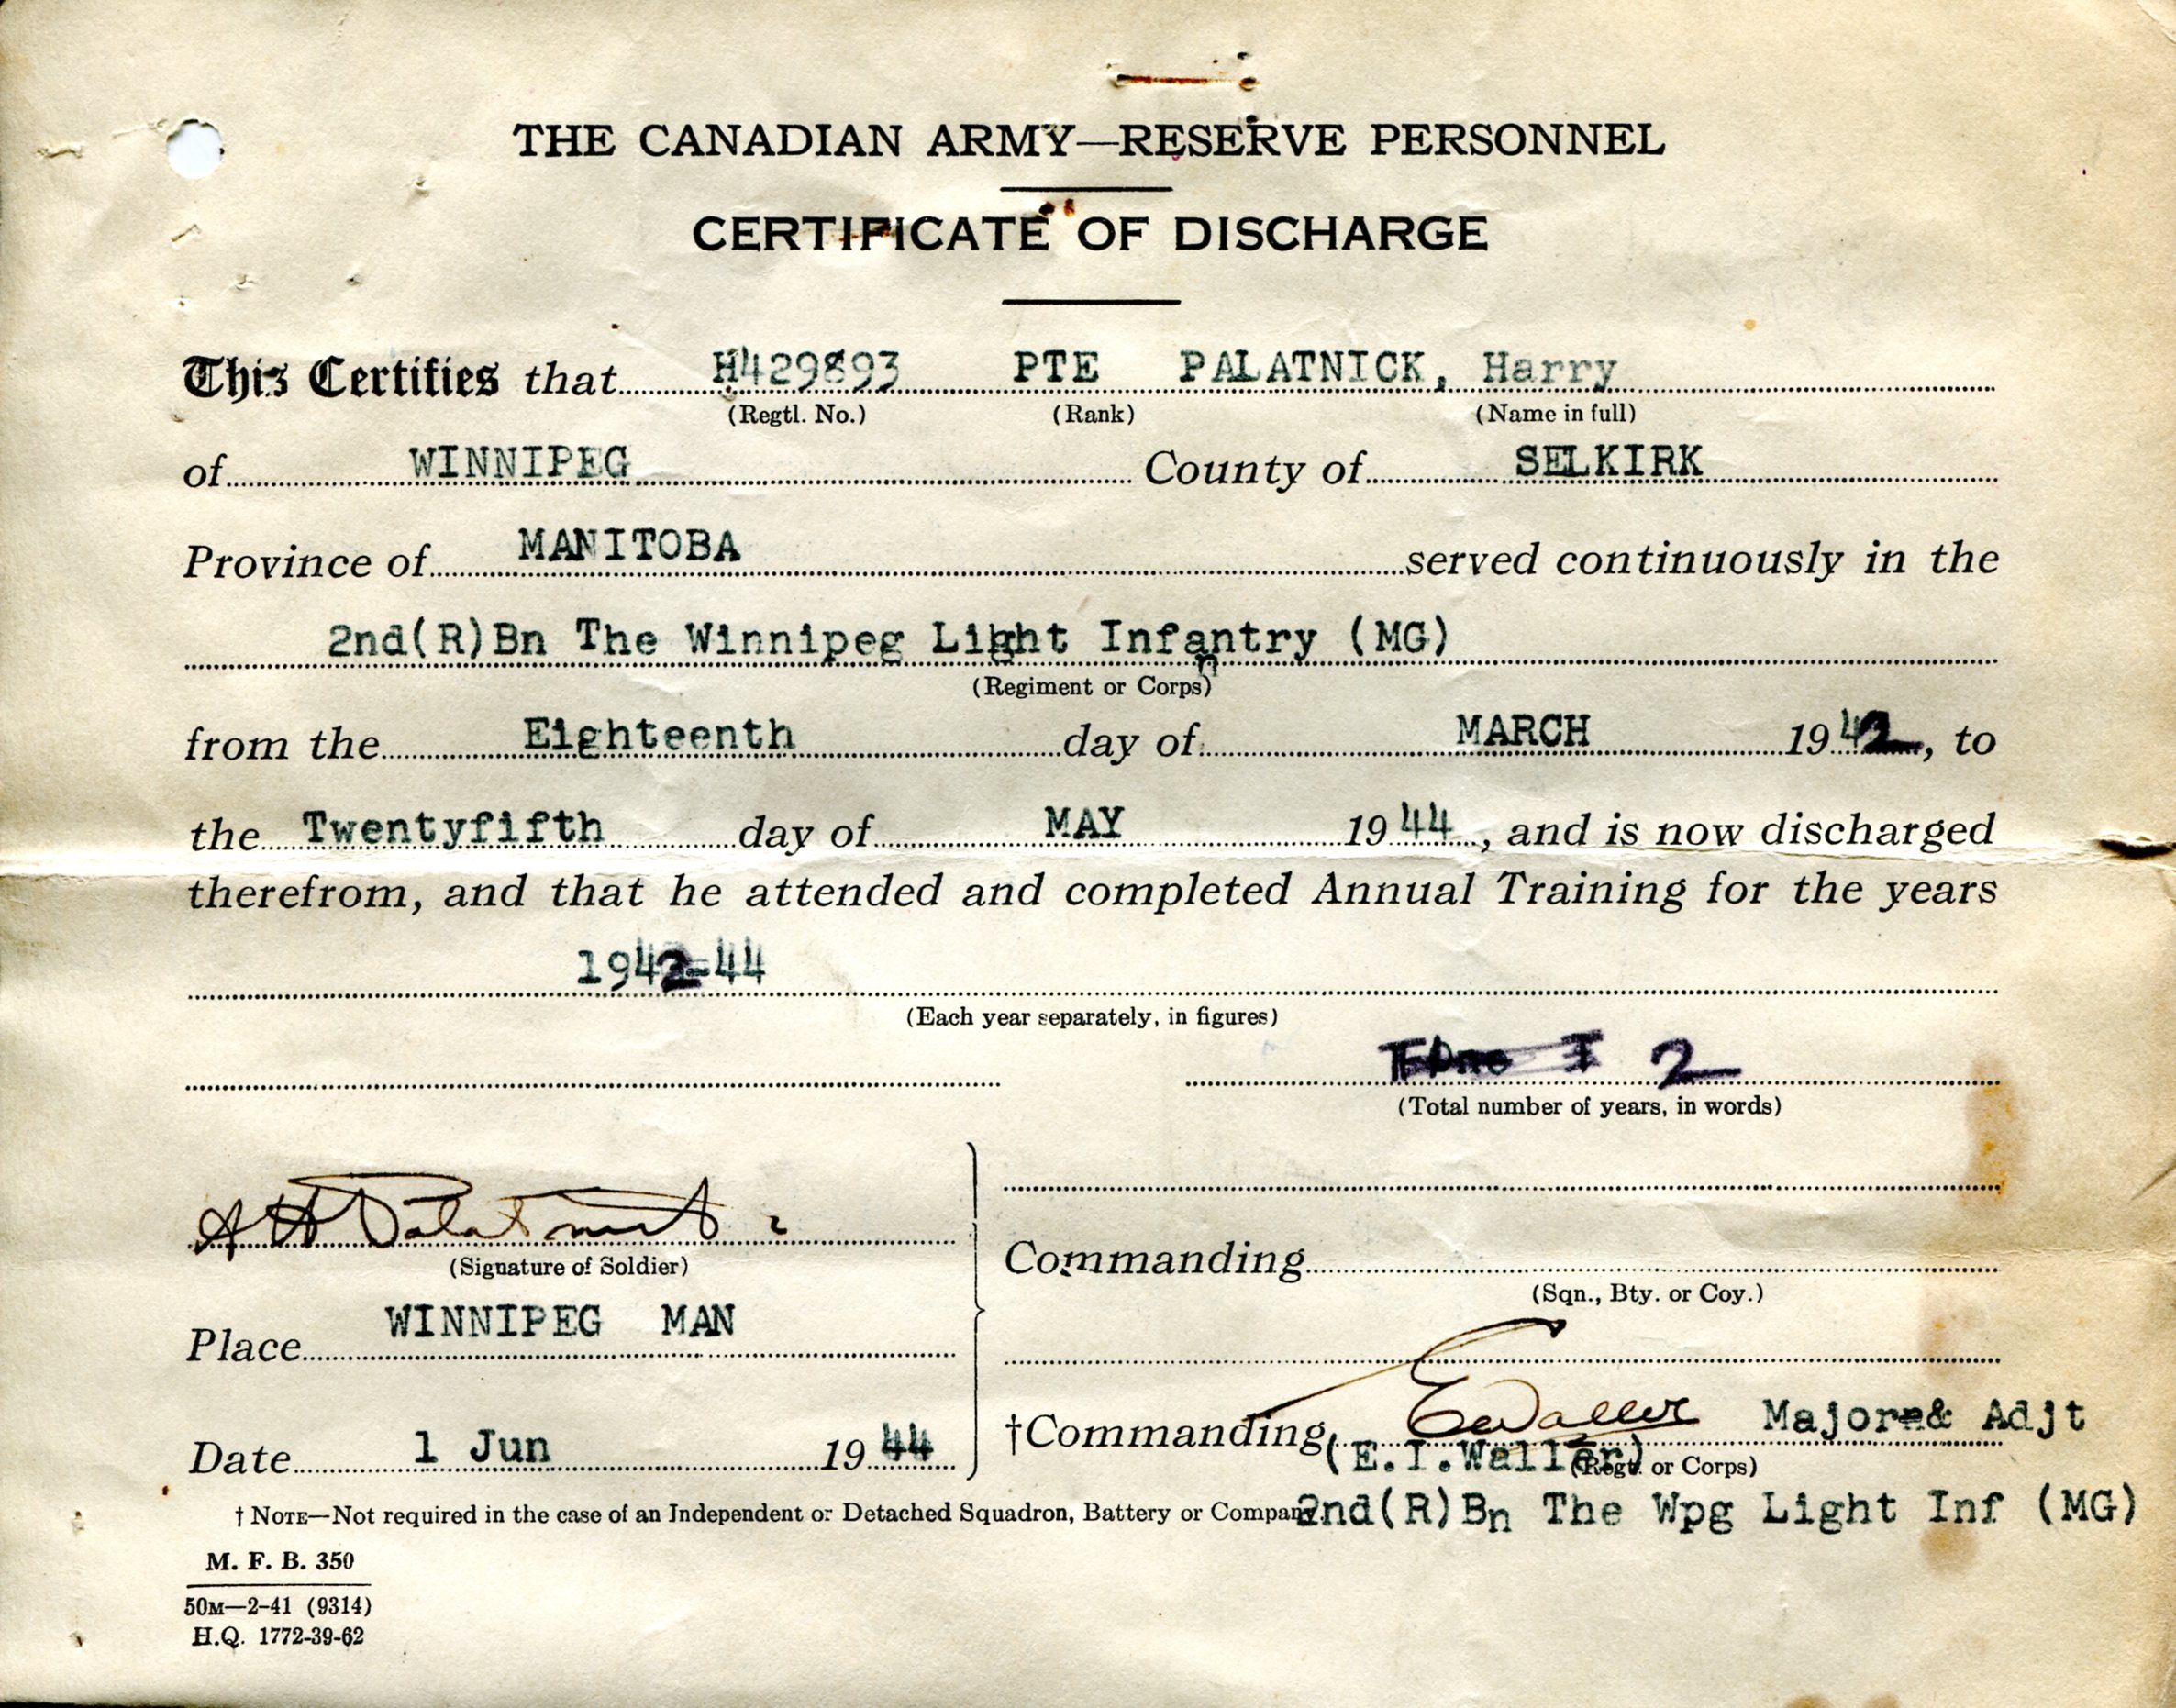 THE CANADIAN ARMY—RESERVE PERSONNEL
CERTIFICATE OF DISCHARGE
This Certifies that H429893 PTE PALATNICK, Harry
(Regtl. No.) (Rank) (Name in full)
of WINNIPEG County of SELKIRK
Province of MANITOBA served continuously in the
2nd(R)Bn The Winnipeg Light Infantry (MG)
(Regiment or Corps)
from the Eighteenth day of MARCH 1942, to
the Twentyfifth day of MAY 1944, and is now discharged
therefrom, and that he attended and completed Annual Training for the years
1942-44
(Each year separately, in figures)
2
(Total number of years, in words)
(Signature of Soldier)
Commanding
(Sqn., Bty. or Coy.)
Place WINNIPEG MAN
†Commanding EWaller Major & Adjt
(E.I.Waller) (Regt. or Corps)
Date 1 Jun 1944
2nd(R)Bn The Wpg Light Inf (MG)
† NOTE—Not required in the case of an Independent or Detached Squadron, Battery or Company
M. F. B. 350
50M—2-41 (9314)
H.Q. 1772-39-62